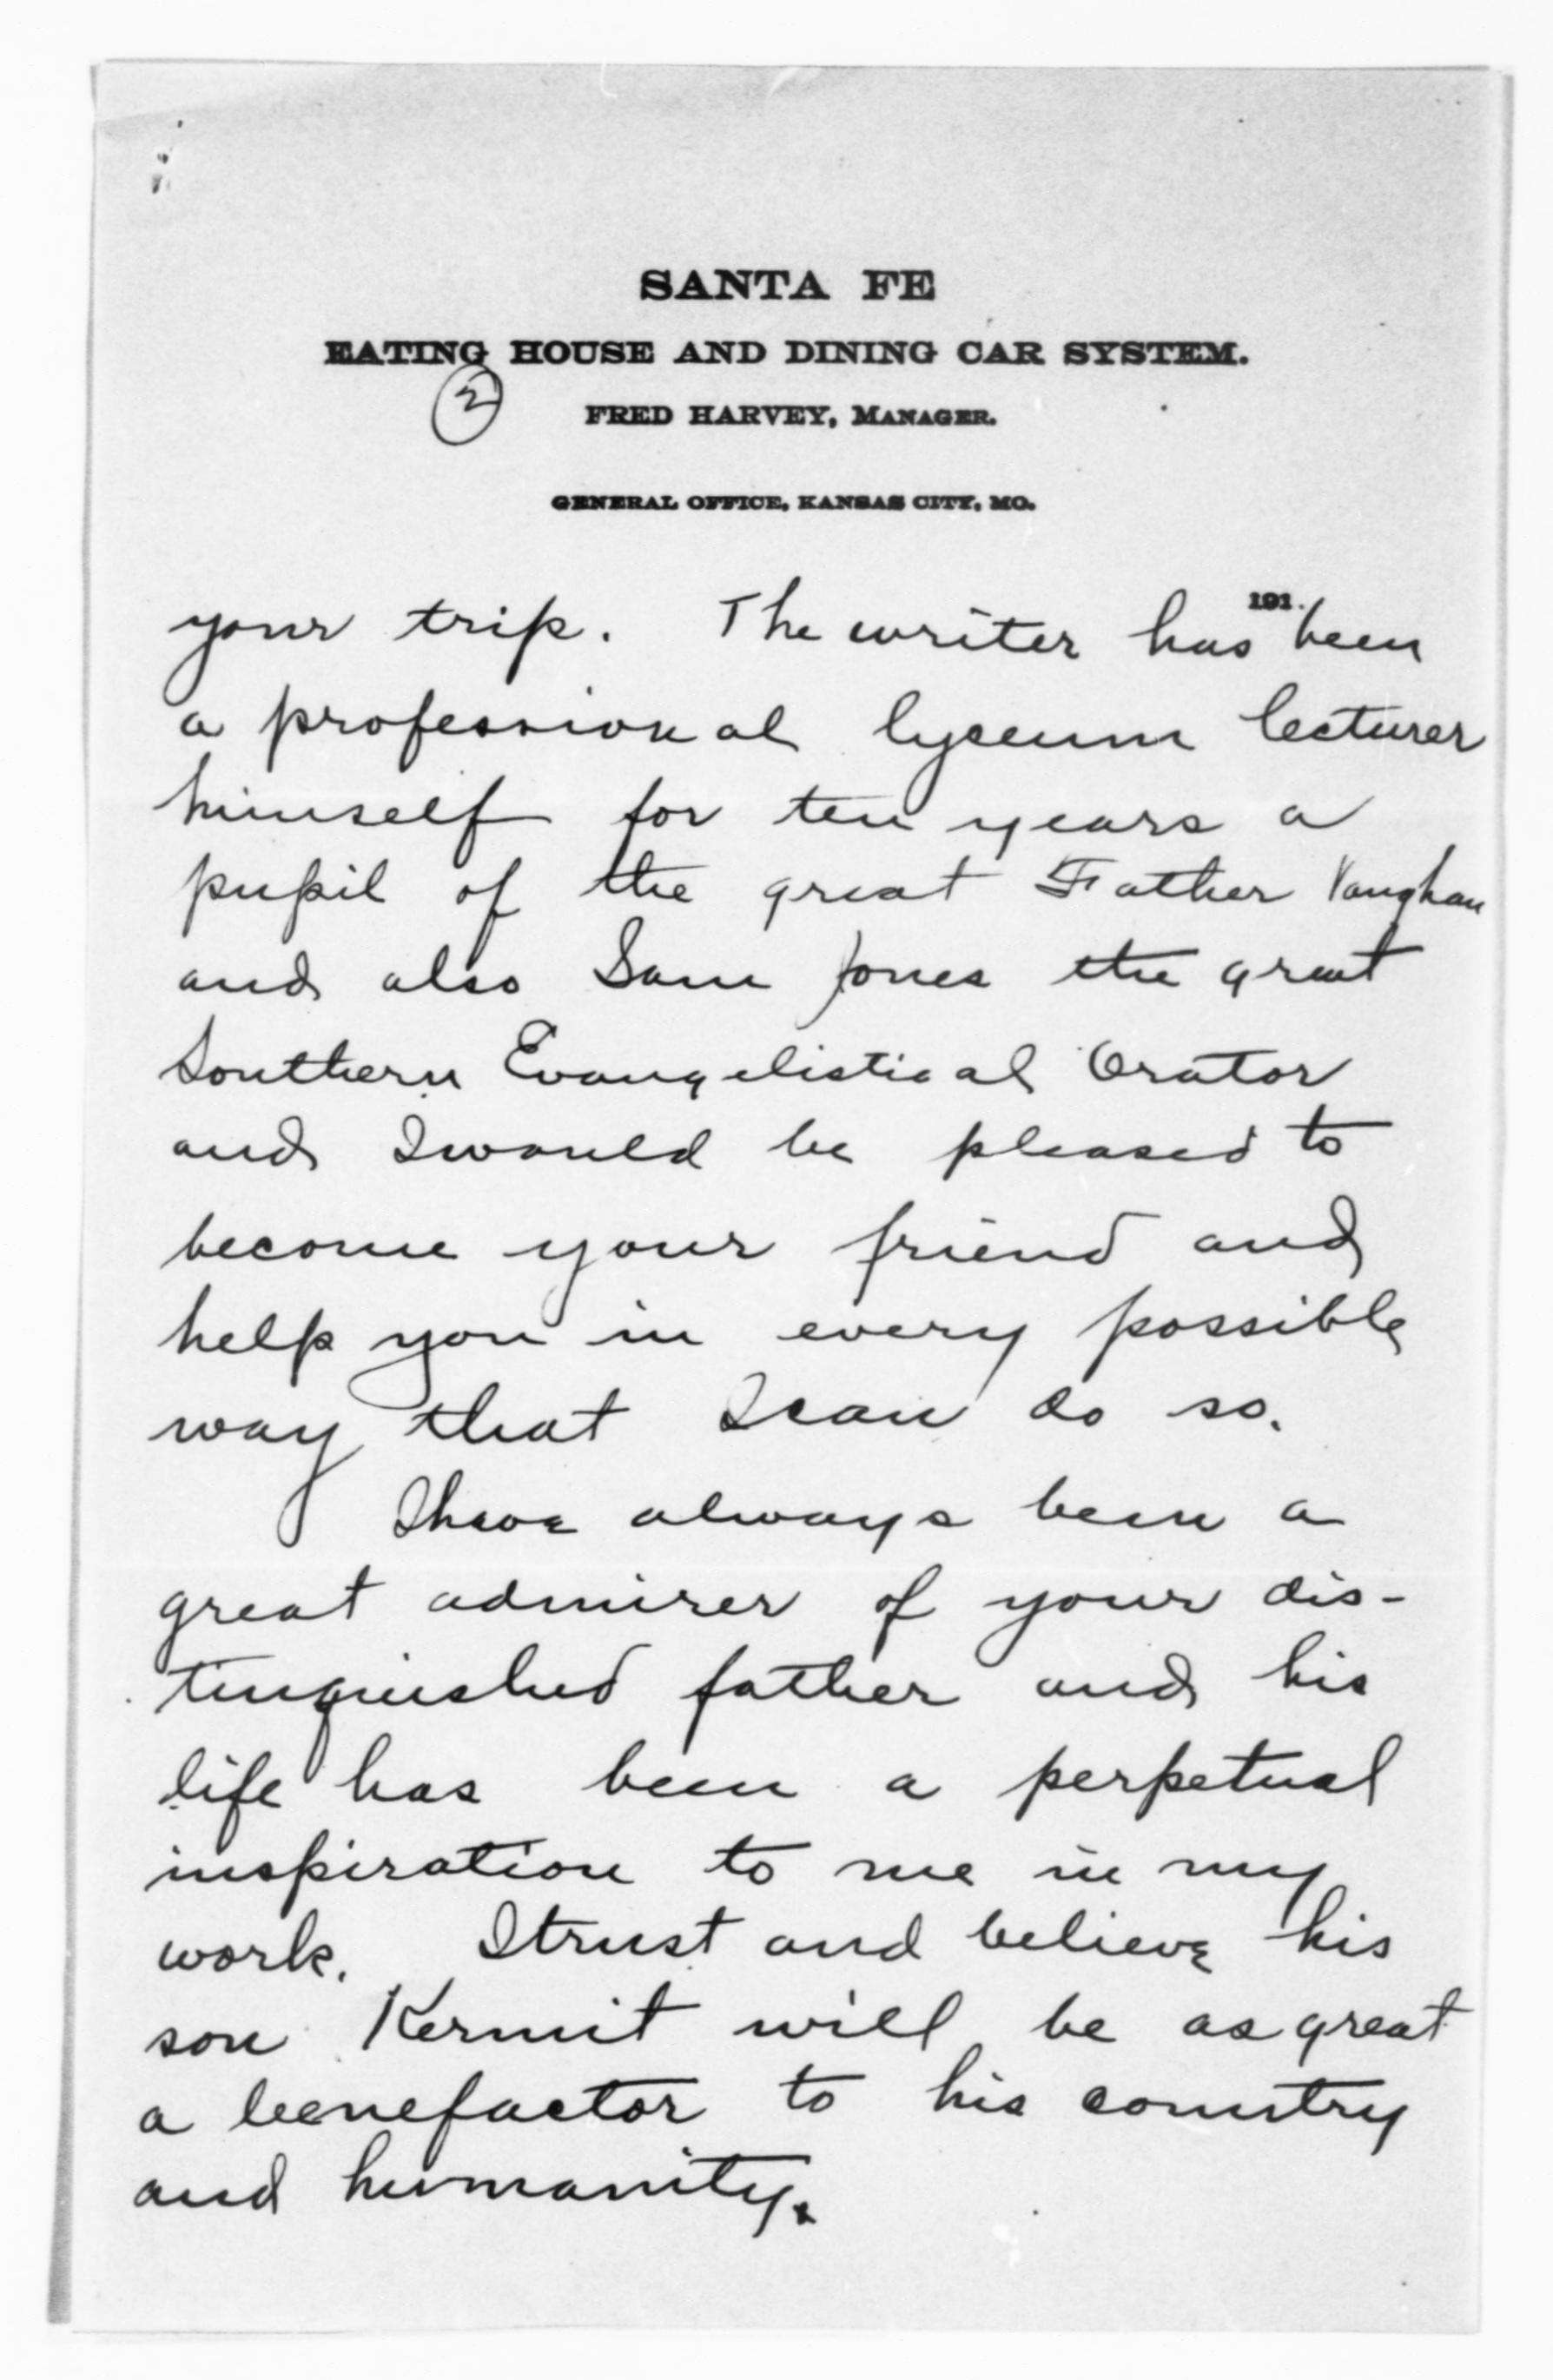 SANTA FE
EATING HOUSE AND DINING CAR SYSTEM.
2
FRED HARVEY, MANAGER.
GENERAL OFFICE, KANSAS CITY, MO.
191 .
your trip. The writer has been
a professional lyceum lecturer
himself for ten years a
pupil of the great Father Vaughan
and also Sam Jones the great
Southern Evangelistical Orator
and I would be pleased to
become your friend and
help you in every possible
way that I can do so.
I have always been a
great admirer of your dis-
tinguished father and his
life has been a perpetual
inspiration to me in my
work. I trust and believe his
son Kermit will be as great
a benefactor to his country
and humanity.